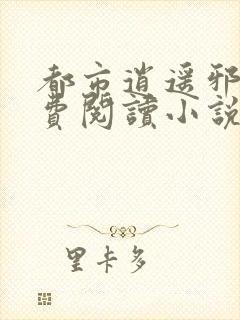 都市逍遥邪
費閱讀小說
里卡多